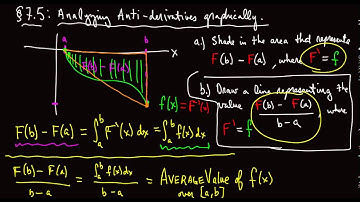 §7.5: Analyzing Anti-derivatives graphically.
a b x
F(b) - F(a)
f(x) = F'(x)
a.) Shade in the area that represents
F(b) - F(a), where F' = f
b.) Draw a line representing the
value F(b) - F(a) / b - a, where
F' = f
F(b) - F(a) = ∫_a^b F'(x) dx = ∫_a^b f(x) dx
F(b) - F(a) / b - a = ∫_a^b f(x) dx / b - a = AVERAGE Value of f(x)
over [a,b]